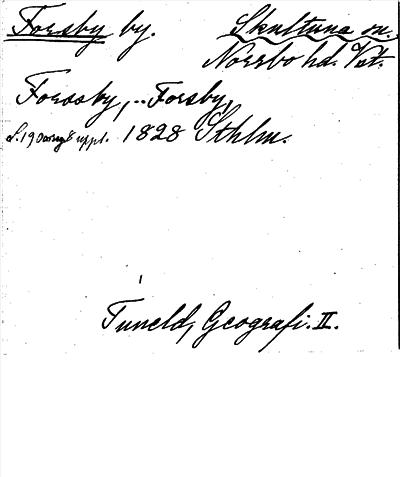 Forsby by. Skultuna sn.
Norrbo hd. Vst.
Forssby, .. Forsby,
1828 Sthlm.
Tuneld, Geografi. II.